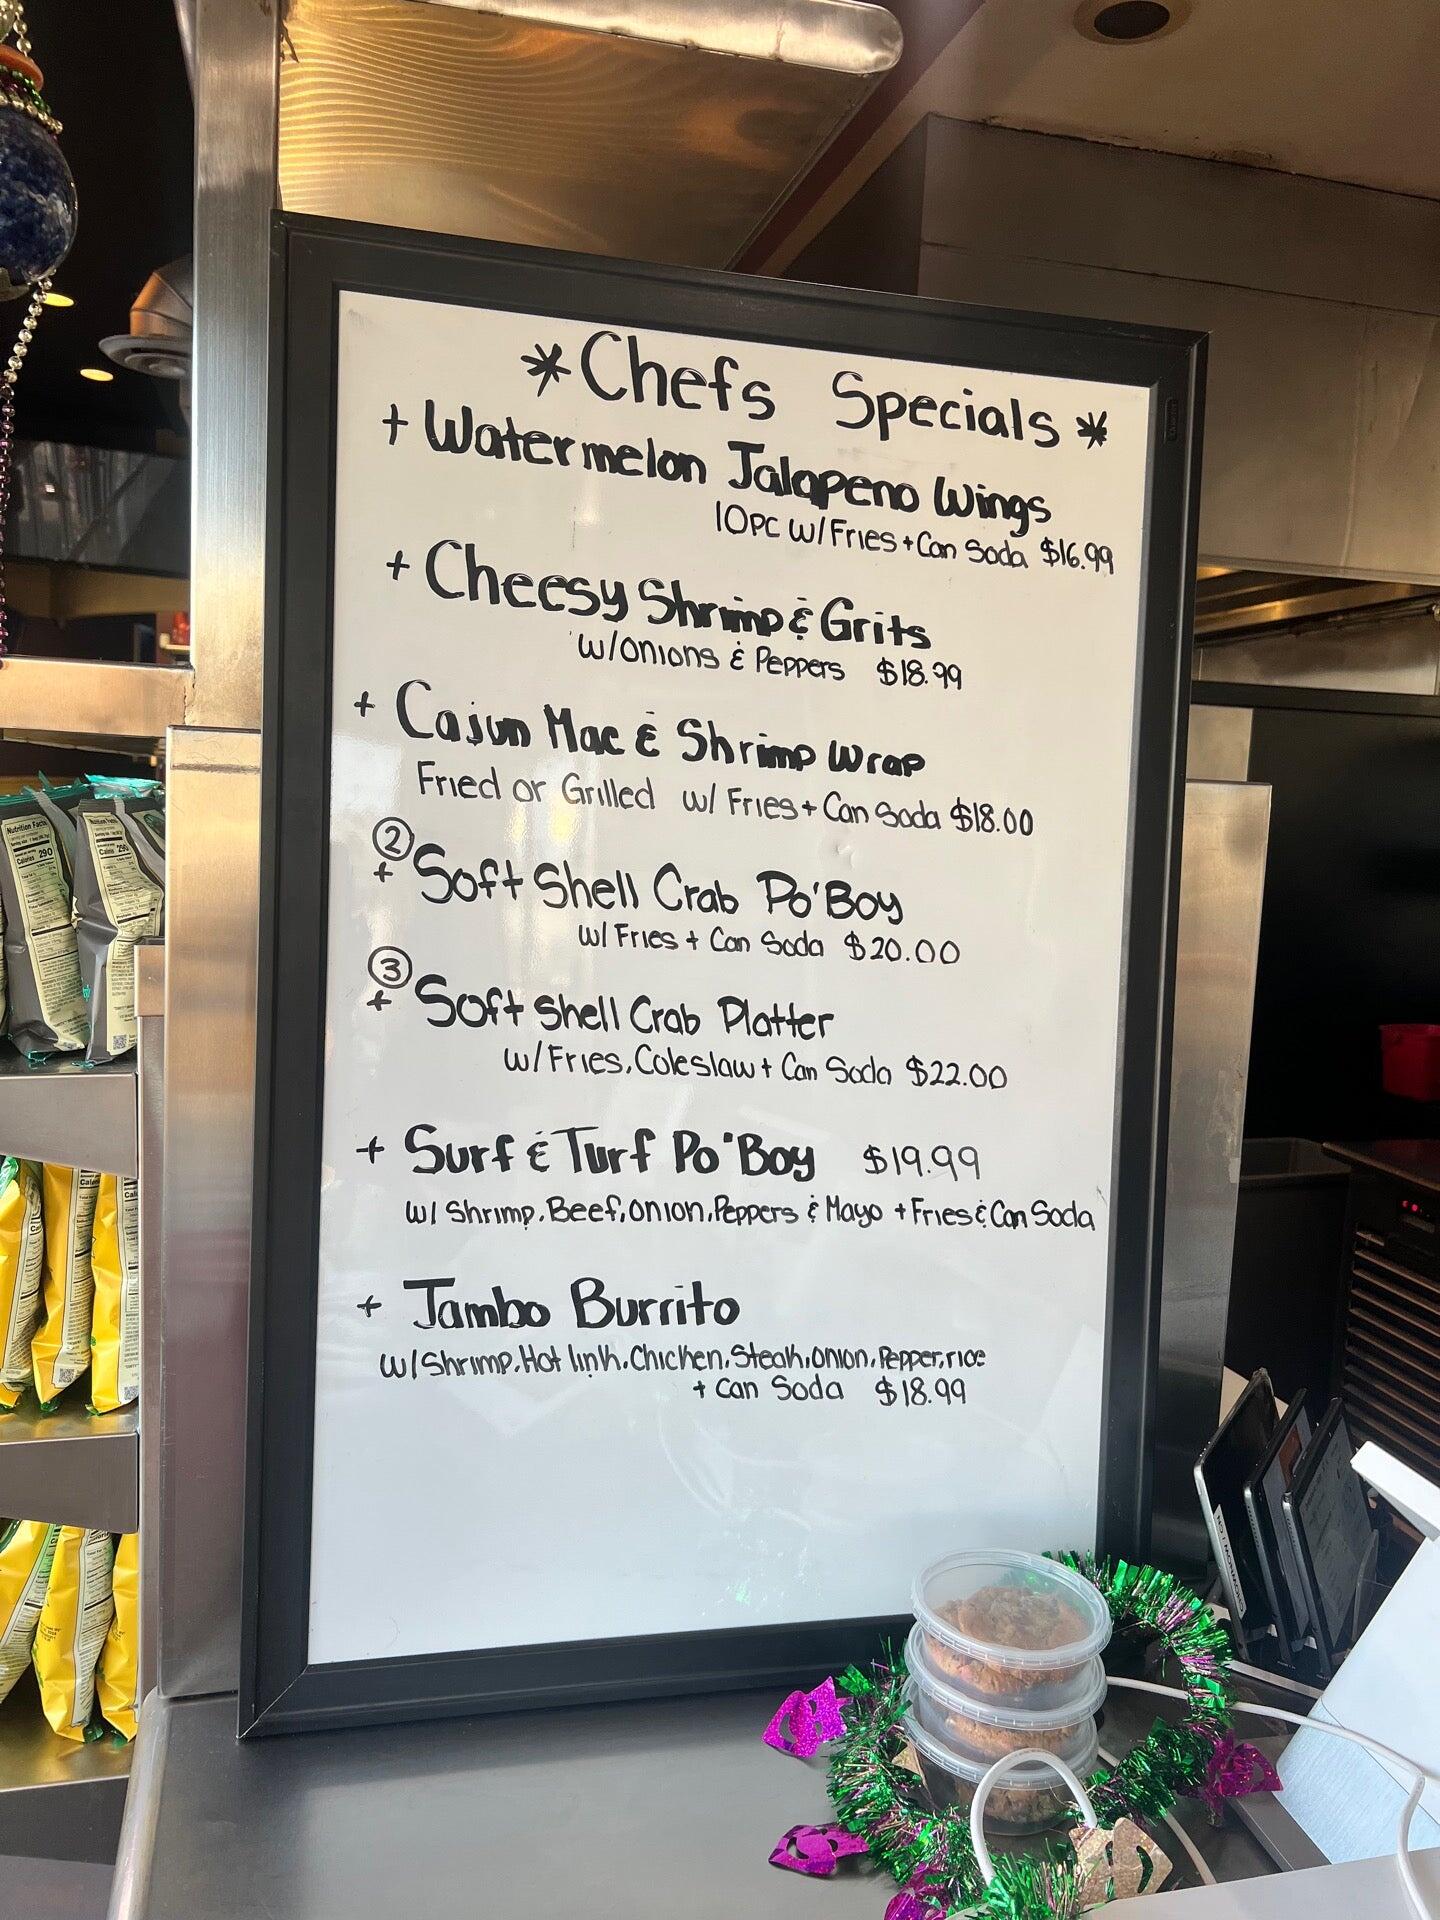 *Chefs Specials*
+ Watermelon Jalapeno Wings
10PC w/Fries + Can Soda $16.99
+ Cheesy Shrimp & Grits
w/onions & Peppers $18.99
+ Cajun Mac & Shrimp Wrap
Fried or Grilled w/ Fries + Can Soda $18.00
②
+ Soft Shell Crab Po'Boy
w/ Fries + Can Soda $20.00
③
+ Soft Shell Crab Platter
w/Fries, Coleslaw + Can Soda $22.00
+ Surf & Turf Po'Boy $19.99
w/ Shrimp, Beef, onion, Peppers & Mayo + Fries & Can Soda
+ Jambo Burrito
w/Shrimp, Hot link, Chicken, Steak, onion, Pepper, rice
+ Can Soda $18.99
Nutrition Facts
Calories 290